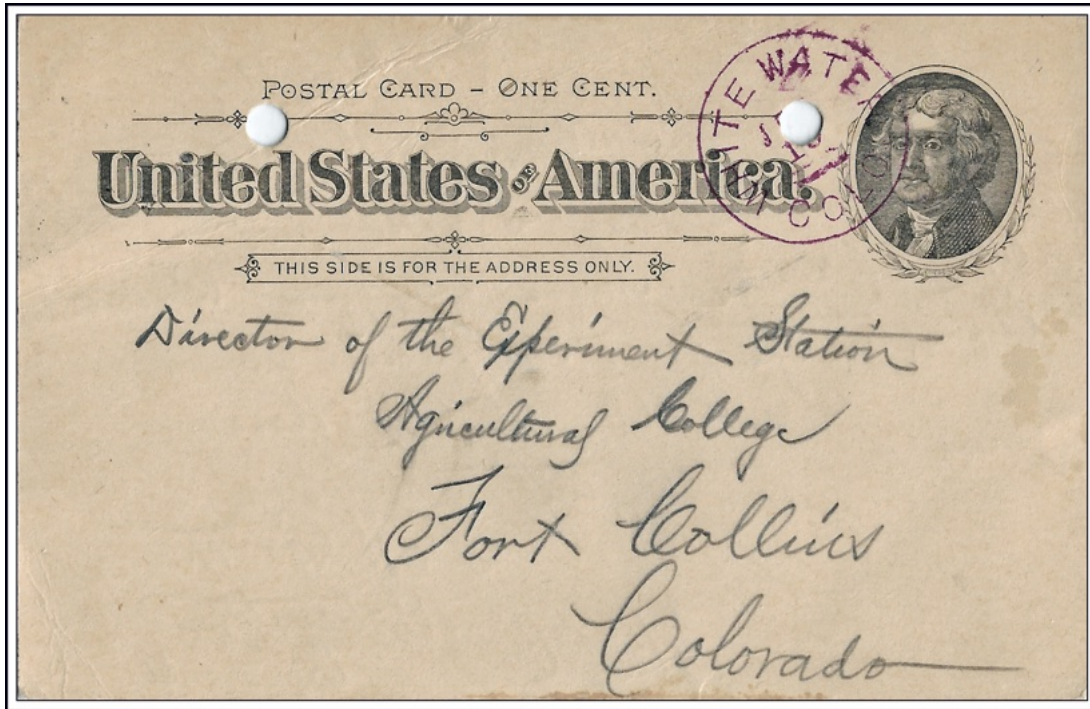 POSTAL CARD – ONE CENT.
United States OF America.
WHITEWATER
COLO
THIS SIDE IS FOR THE ADDRESS ONLY.
Director of the Experiment Station
Agricultural College
Fort Collins
Colorado